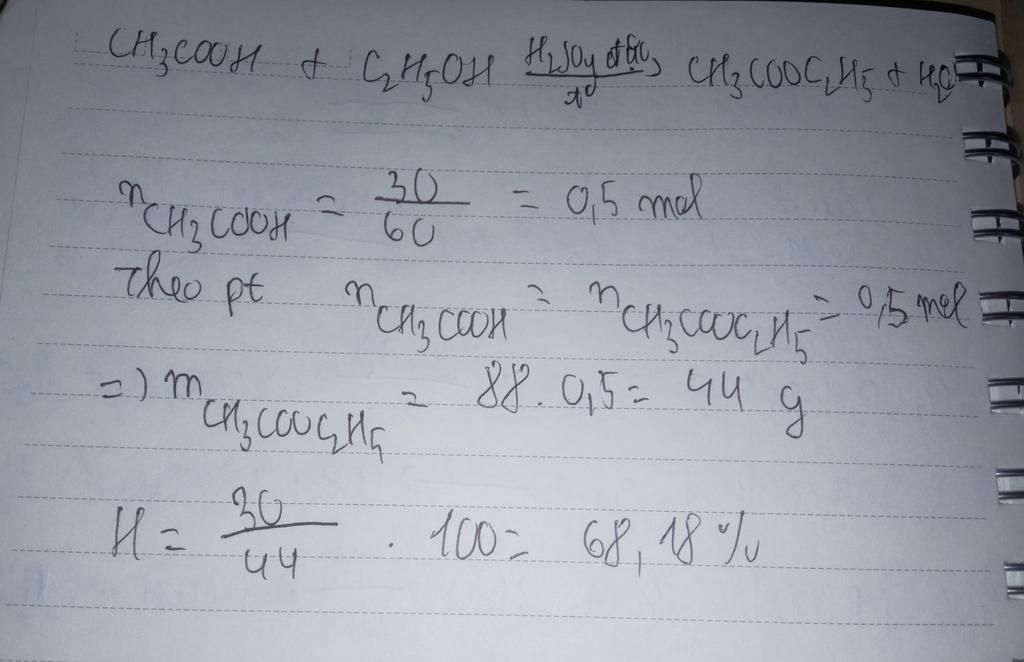 CH3COOH + C2H5OH H2SO4 đặc, t° CH3COOC2H5 + H2O
nCH3COOH = 30/60 = 0,5 mol
Theo pt nCH3COOH = nCH3COOC2H5 = 0,5 mol
=) mCH3COOC2H5 = 88 . 0,5 = 44 g
H = 30/44 . 100 = 68,18 %